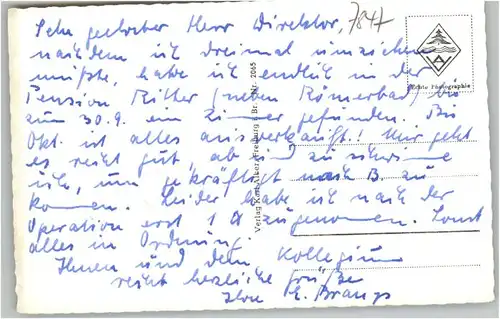 Sehr geehrter Herr Direktor,
7847
nachdem ich dreimal umziehen
mußte, habe ich endlich in der
Pension Ritter (neben Römerbad) bis
zum 30.9. ein Zimmer gefunden. Bis
Okt. ist alles ausverkauft! Mir geht
es recht gut,
ich, um gekräftigt nach B. zu
kommen. Leider habe ich nach der
Operation erst 1 zugenommen. Sonst
alles in Ordnung.
Ihnen und dem Kollegium
recht herzliche Grüße
Ihre E.
Echte Photographie
Verlag Karl Alber, Freiburg i. Br. 2065